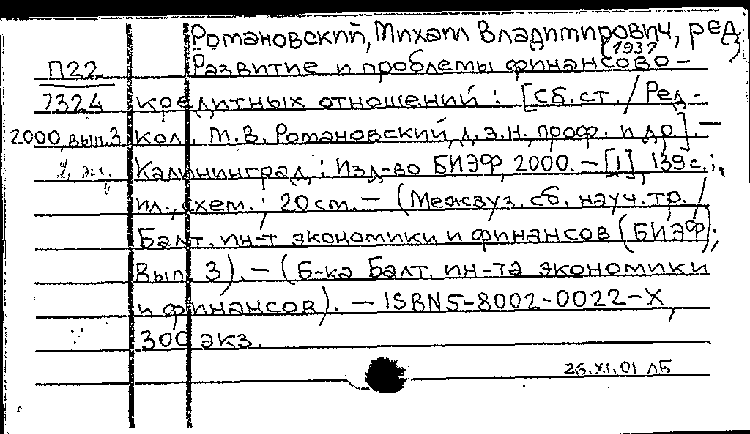 Романовский, Михаил Владимирович, ред.
(1937
П22 Развитие и проблемы финансово-
7324 кредитных отношений : [Сб. ст. / Ред-
2000, вып. 3 кол. М. В. Романовский, д. э. н., проф. и др.]. —
Калининград : Изд-во БИЭФ, 2000. — [1], 139 с. :
ил., схем. ; 20 см. — (Межвуз. сб. науч. тр. /
Балт. ин-т экономики и финансов (БИЭФ) ;
Вып. 3). — (Б-ка Балт. ин-та экономики
и финансов). — ISBN 5-8002-0022-X,
300 экз.
26.XI.01 ЛБ